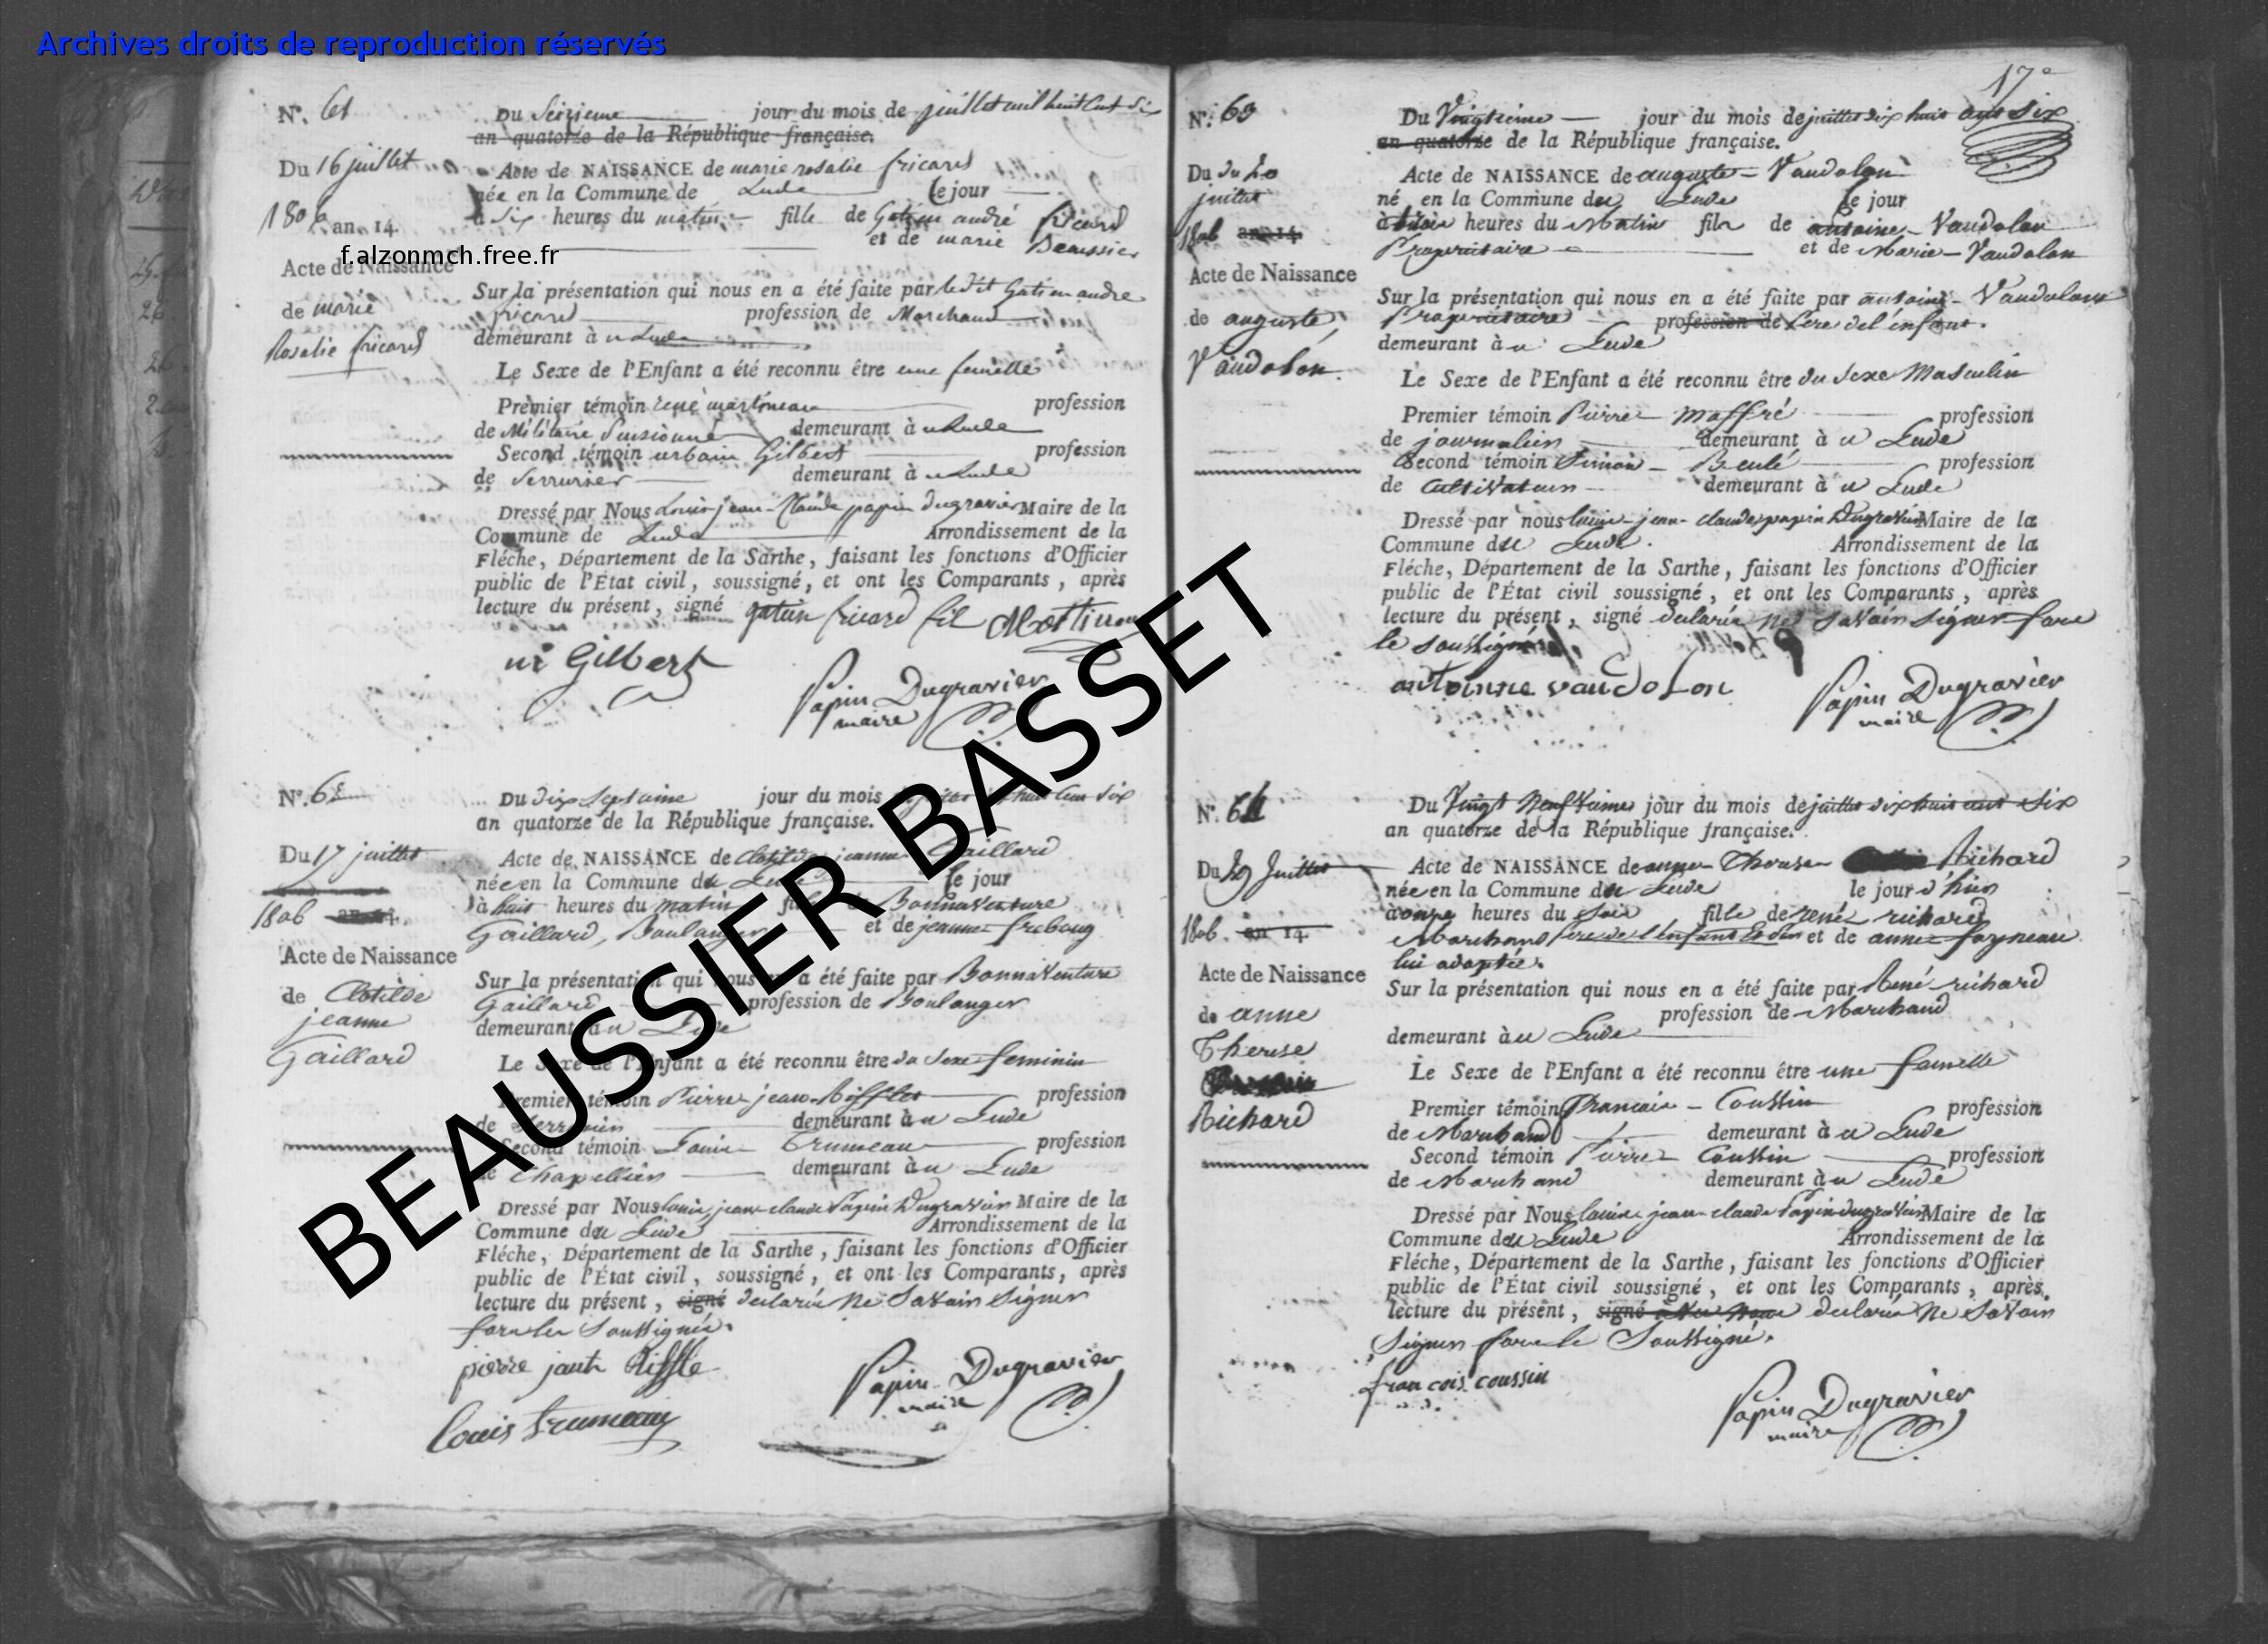 Archives droits de reproduction réservés
f.alzonmch.free.fr
BEAUSSIER BASSET
N°. 61
Du 16 juillet
1806 an 14.
Acte de Naissance
de marie
Rosalie fricard
Du Seizieme jour du mois de juillet mil huit Cent Six
an quatorze de la République française.
Acte de NAISSANCE de marie rosalie fricard
née en la Commune de Lude le jour
à Six heures du matin fille de Gatien andré fricard
et de marie Beaussier
Sur la présentation qui nous en a été faite par le dit Gatien andre
fricard profession de Marchand
demeurant à u Lude
Le Sexe de l'Enfant a été reconnu être une femelle
Premier témoin rené martineau profession
de Militaire Pensionné demeurant à u Lude
Second témoin urbain Gilbert profession
de Serrurier demeurant à u Lude
Dressé par Nous Louis jean Claude papin dugravier Maire de la
Commune de Lude Arrondissement de la
Fléche, Département de la Sarthe, faisant les fonctions d'Officier
public de l'État civil, soussigné, et ont les Comparants, après
lecture du présent, signé gatien fricard
Gilbert
Papin Dugravier
maire
N°. 62
Du 17 juillet
1806 an 14.
Acte de Naissance
de Clotilde
jeanne
Gaillard
Du dix Septieme jour du mois
an quatorze de la République française.
Acte de NAISSANCE de Clotilde jeanne Gaillard
née en la Commune du Lude le jour
à huit heures du matin Bonnaventure
Gaillard, Boulanger et de jeanne
Sur la présentation qui nous en a été faite par Bonnaventure
Gaillard profession de Boulanger
demeurant à u Lude
Le Sexe de l'Enfant a été reconnu être du Sexe feminin
Premier témoin Pierre jean profession
de demeurant à u Lude
Second témoin Louis Trumeau profession
de Chapellier demeurant à u Lude
Dressé par Nous louis jean claude Papin Dugravier Maire de la
Commune du Lude Arrondissement de la
Fléche, Département de la Sarthe, faisant les fonctions d'Officier
public de l'État civil, soussigné, et ont les Comparants, après
lecture du présent, signé declaré Ne Savoir Signer
fors les Soussignés.
pierre
Louis trumeau
Papin Dugravier
maire
17e
N°. 63
Du du 20
juillet
1806 an 14.
Acte de Naissance
de auguste
Vaudolon.
Du Vingtieme jour du mois de juillet dix huit cent Six
an quatorze de la République française.
Acte de NAISSANCE de auguste Vaudolon
né en la Commune du Lude le jour
à trois heures du Matin fils de antoine Vaudolon
Proprietaire et de Marie Vaudolon
Sur la présentation qui nous en a été faite par antoine Vaudolon
Proprietaire profession de Pere de l'enfant.
demeurant à u Lude
Le Sexe de l'Enfant a été reconnu être du Sexe Masculin
Premier témoin Pierre Maffré profession
de journalier demeurant à u Lude
Second témoin Simon Beulé profession
de Cultivateur demeurant à u Lude
Dressé par nous louis jean claude papin Dugravier Maire de la
Commune du Lude. Arrondissement de la
Fléche, Département de la Sarthe, faisant les fonctions d'Officier
public de l'État civil soussigné, et ont les Comparants, après
lecture du présent, signé declaré ne savoir signer fors
le soussigné
antoinne vaudolon
Papin Dugravier
maire
N°. 64
Du 29 Juillet
1806. an 14.
Acte de Naissance
de anne
Therese
Richard
Du Vingt Neufvieme jour du mois de juillet dix huit cent Six
an quatorze de la République française.
Acte de NAISSANCE de anne Therese Richard
née en la Commune du Lude le jour d'hier
à onze heures du Soir fille de rené richard
Marchand Pere de l'enfant et de anne
lui adoptée.
Sur la présentation qui nous en a été faite par René richard
profession de Marchand
demeurant à u Lude
Le Sexe de l'Enfant a été reconnu être une femelle
Premier témoin Francois Coussin profession
de Marchand demeurant à u Lude
Second témoin Pierre Coussin profession
de Marchand demeurant à u Lude
Dressé par Nous louis jean claude Papin dugravier Maire de la
Commune du Lude Arrondissement de la
Fléche, Département de la Sarthe, faisant les fonctions d'Officier
public de l'État civil soussigné, et ont les Comparants, après
lecture du présent, signé declaré Ne Savoir
Signer fors le Soussigné.
francois coussin
Papin Dugravier
maire